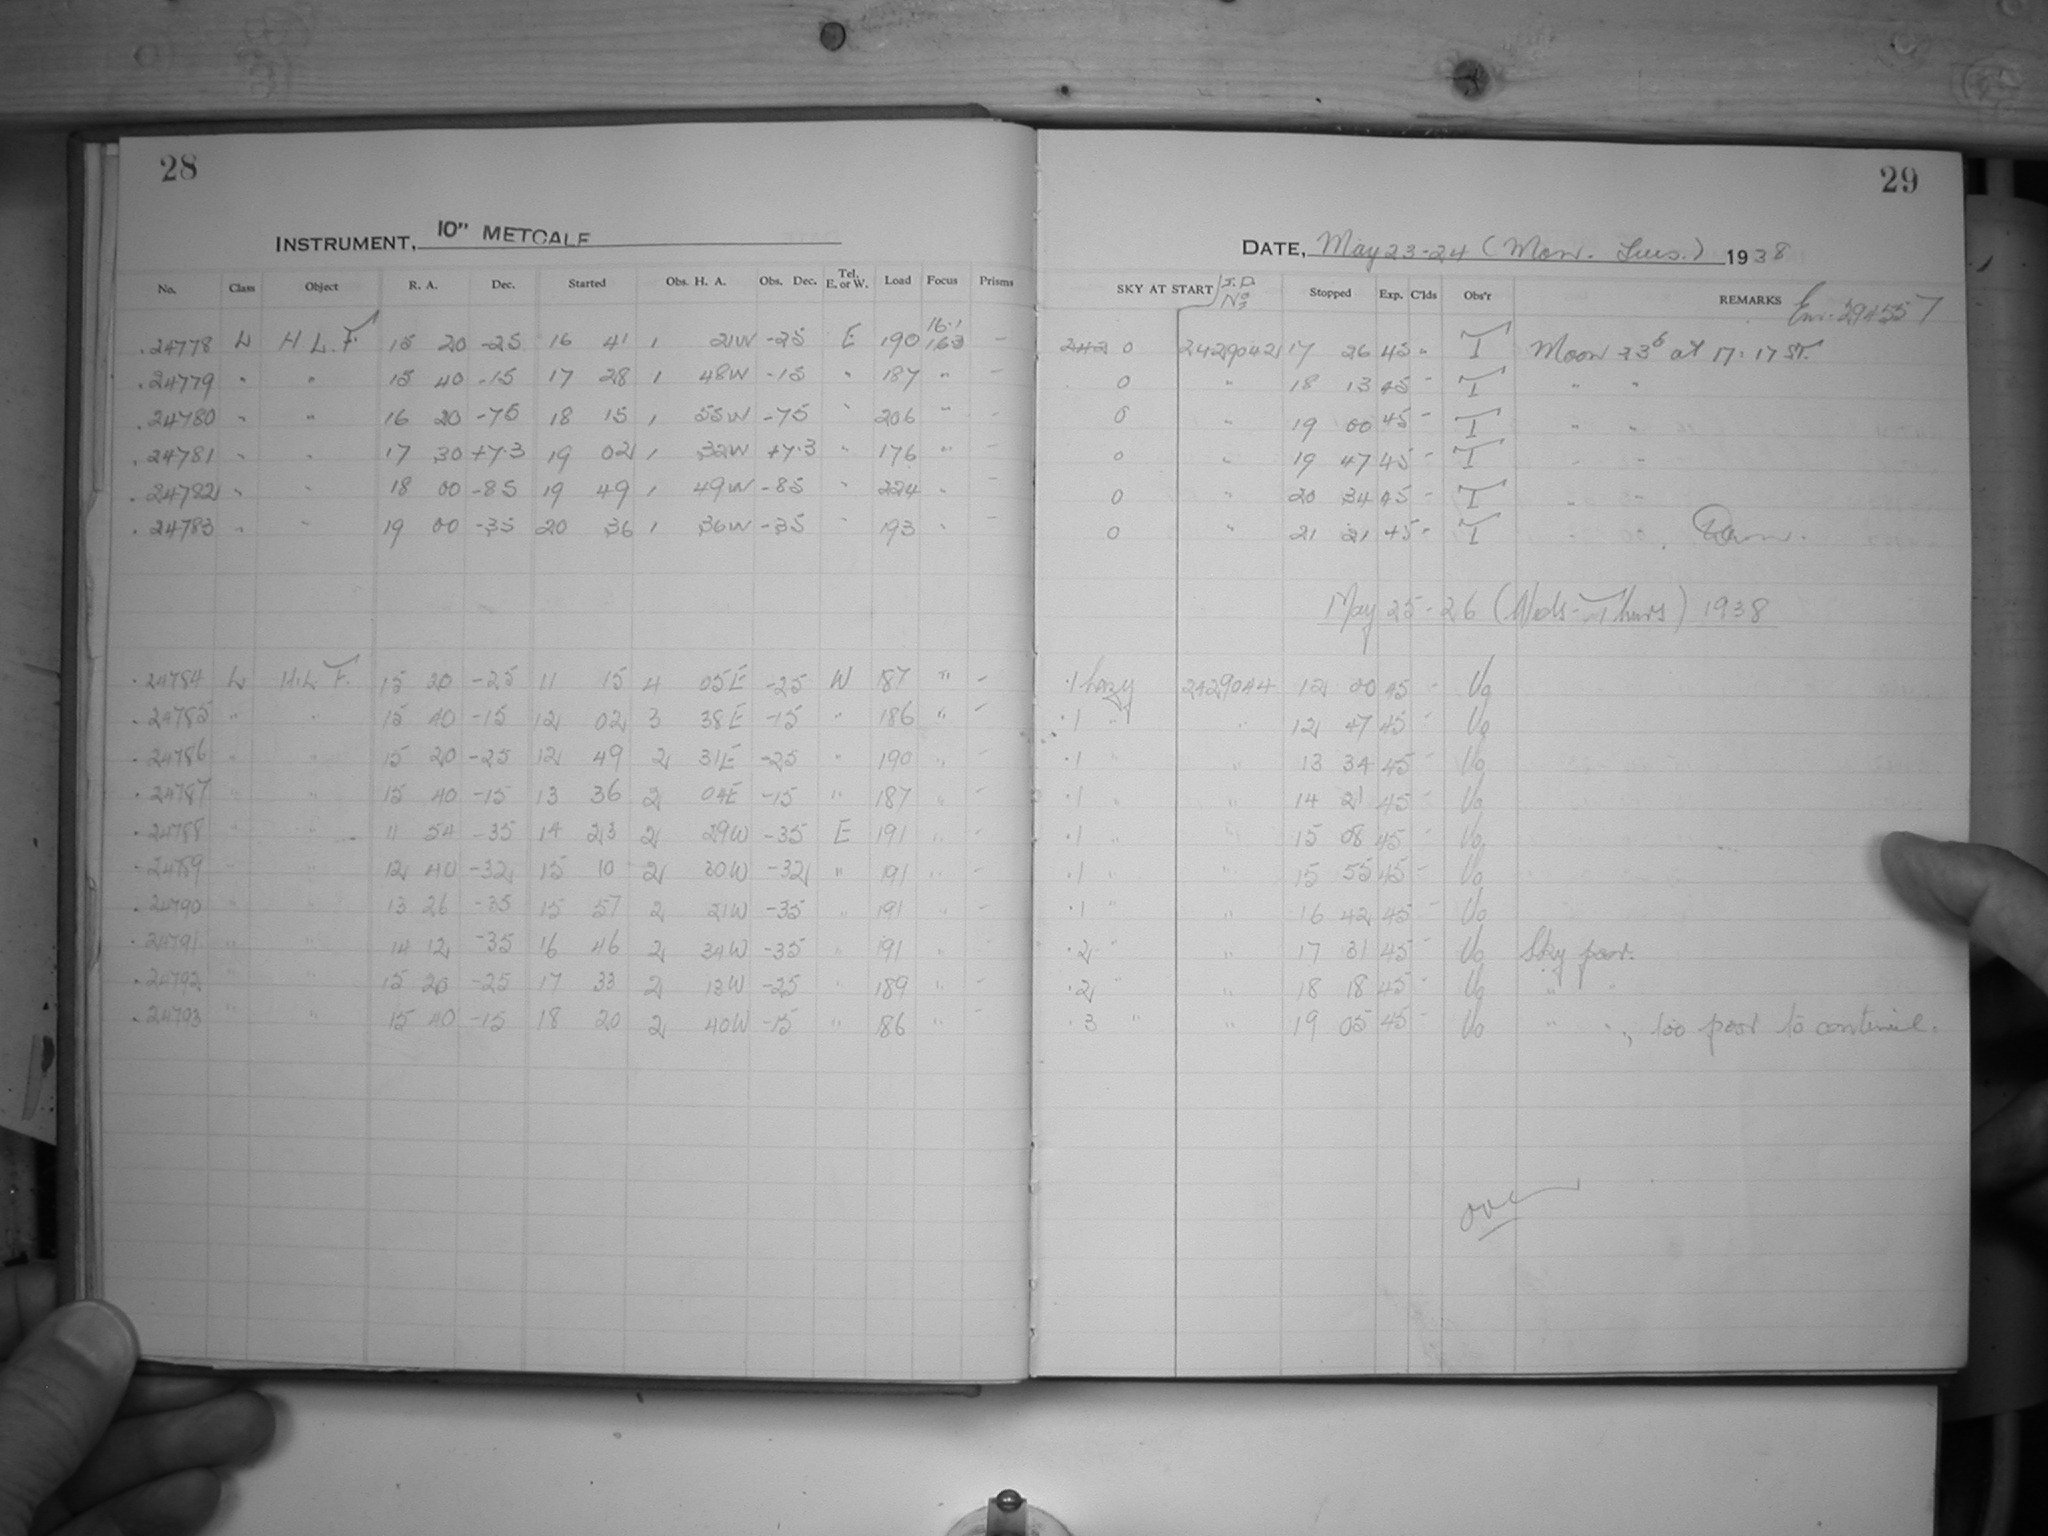 28
29
INSTRUMENT, 10" METCALF
DATE, May 23-24 (Mon. Tues.) 1938
No. Class Object R. A. Dec. Started Obs. H. A. Obs. Dec. Tel. E. or W. Load Focus Prisms SKY AT START J.D. No. Stopped Exp. C'lds Obs'r REMARKS
.24778 L H L F. 15 20 -25 16 41 1 21W -25 E 190 16.1 — 0 2429042 17 26 45 " T Moon 23 at 17:17 ST.
.24779 " " 15 40 -15 17 28 1 48W -15 " 187 " — 0 " 18 13 45 - T " "
.24780 " " 16 20 -75 18 15 1 55W -75 " 206 " - 0 " 19 00 45 - T " "
.24781 " " 17 30 +7.3 19 02 1 32W +7.3 " 176 " - 0 " 19 47 45 - T " "
.24782 " " 18 00 -85 19 49 1 49W -85 " 224 " - 0 " 20 34 45 - T " "
.24783 " " 19 00 -35 20 36 1 36W -35 " 193 " - 0 " 21 21 45 - T " . Dawn.
May 25-26 (Weds-Thurs) 1938
.24784 L H.L F. 15 20 -25 11 15 4 05E -25 W 187 " - .1 hazy 2429044 12 00 45 - Uo
.24785 " " 15 40 -15 12 02 3 38E -15 " 186 " - .1 " " 12 47 45 - Uo
.24786 " " 15 20 -25 12 49 2 31E -25 " 190 " - .1 " " 13 34 45 - Uo
.24787 " " 15 40 -15 13 36 2 04E -15 " 187 " - .1 " " 14 21 45 - Uo
.24788 " " 11 54 -35 14 23 2 29W -35 E 191 " - .1 " " 15 08 45 - Uo
.24789 " " 12 40 -32 15 10 2 30W -32 " 191 " - .1 " " 15 55 45 - Uo
.24790 " " 13 26 -35 15 57 2 31W -35 " 191 " - .1 " " 16 42 45 - Uo
.24791 " " 14 12 -35 16 46 2 34W -35 " 191 " - .2 " " 17 31 45 - Uo Sky poor.
.24792 " " 15 20 -25 17 33 2 13W -25 " 189 " - .2 " " 18 18 45 - Uo " "
.24793 " " 15 40 -15 18 20 2 40W -15 " 86 " - .3 " " 19 05 45 - Uo " ", too poor to continue.
over